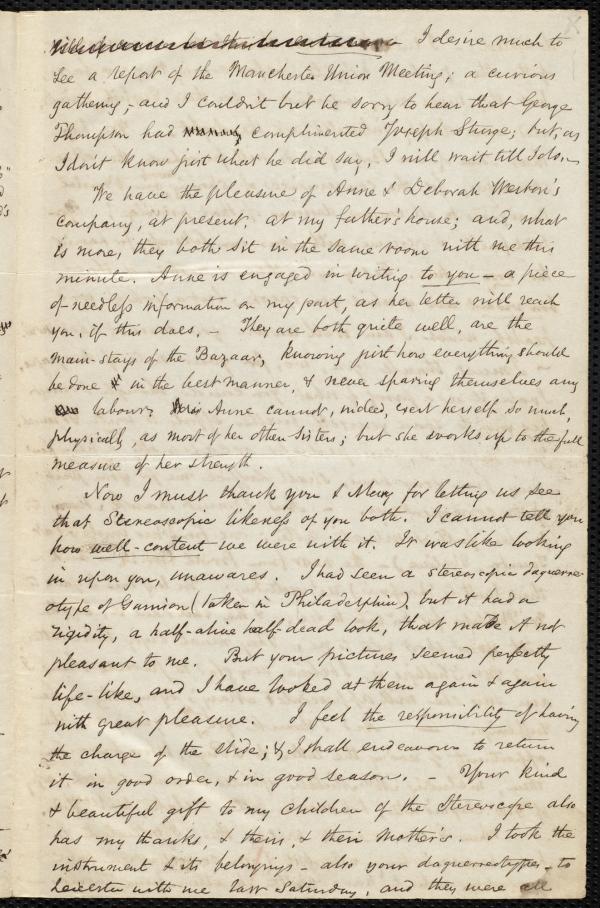 I desire much to
see a report of the Manchester Union Meeting; a curious
gathering,- and I couldn't but be sorry to hear that George
Thompson had complimented Joseph Sturge; but, as
I don't know just what he did say, I will wait till I do.-
We have the pleasure of Anne & Deborah Weston's
company, at present, at my father's house; and, what
is more, they both sit in the same room with me this
minute. Anne is engaged in writing to you - a piece
of needless information on my part, as her letter will reach
you, if this does. - They are both quite well, are the
main-stays of the Bazaar, knowing just how everything should
be done & in the best manner, & never sparing themselves any
labour. Anne cannot, indeed, exert herself so much,
physically, as most of her other sisters; but she works up to the full
measure of her strength.
Now I must thank you & Mary for letting us see
that Stereoscopic likeness of you both. I cannot tell you
how well-content we were with it. It was like looking
in upon you, unawares. I had seen a stereoscopic daguerre-
otype of Garrison (taken in Philadelphia), but it had a
rigidity, a half-alive half-dead look, that made it not
pleasant to me. But your pictures seemed perfectly
life-like, and I have looked at them again & again
with great pleasure. I feel the responsibility of having
the charge of the slide; & I shall endeavour to return
it in good order, & in good season. - Your kind
& beautiful gift to my children of the Stereoscope also
has my thanks, & theirs, & their mother's. I took the
instrument & its belongings - also your daguerreotypes - to
Leicester with me last Saturday, and they were all